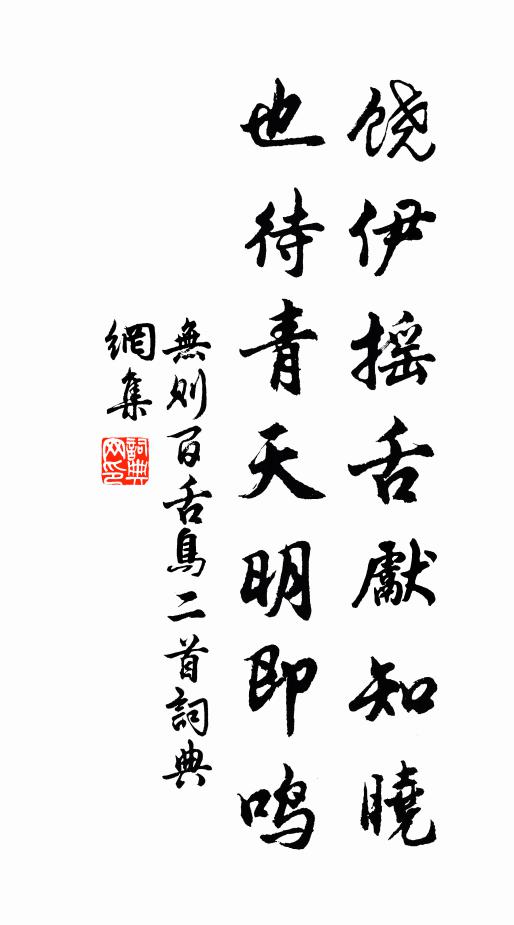 饶伊摇舌獻知曉
也待青天明即鸣
無则百舌鳥二首詞典
網集
詞典網印